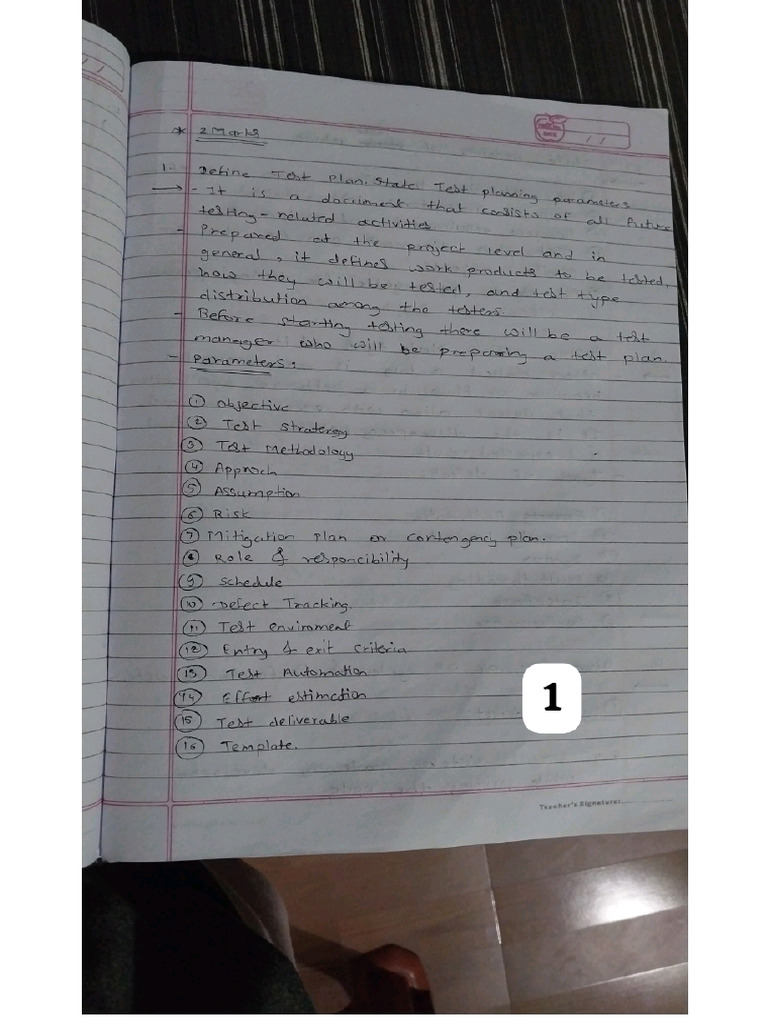 * 2 Marks
1. Define Test Plan. State Test planning parameters
→ - It is a document that consists of all future
testing-related activities
- Prepared at the project level and in
general, it defines work products to be tested,
how they will be tested, and test type
distribution among the testers.
- Before starting testing there will be a test
manager who will be preparing a test plan.
- Parameters:
① Objective
② Test Strategy
③ Test Methodology
④ Approch
⑤ Assumption
⑥ Risk
⑦ Mitigation Plan or Contengency plan.
⑧ Role & responcibility
⑨ Schedule
⑩ Defect Tracking.
⑪ Test enviroment
⑫ Entry & exit criteria
⑬ Test Automation
⑭ Effort estimation
⑮ Test deliverable
⑯ Template.
1
Teacher's Signature: